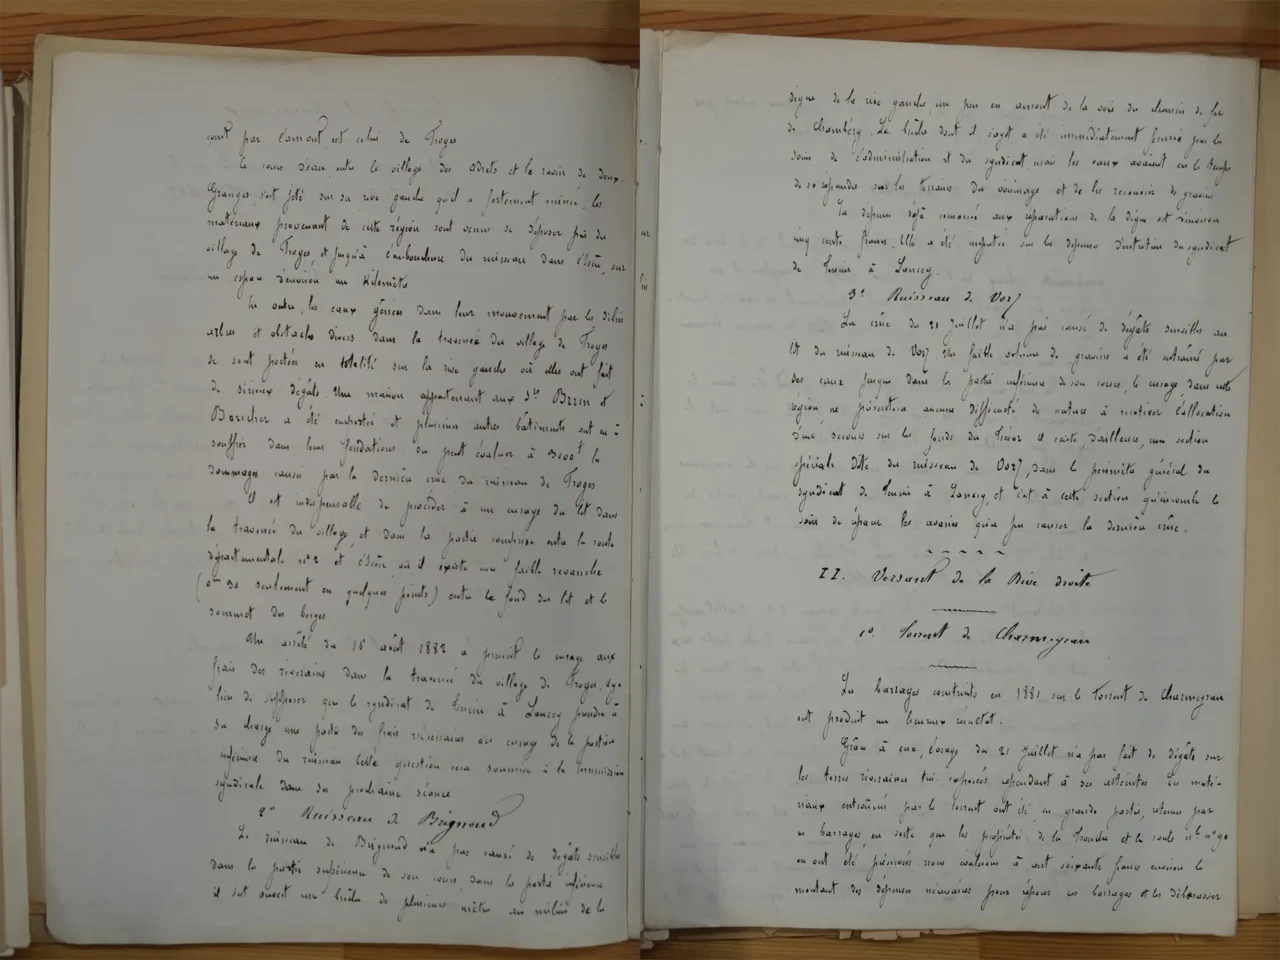 çant par l'amont est celui de Froges
Le cours d'eau entre le village des Adrets et le ravin de deux
Granges s'est jeté sur sa rive gauche qu'il a fortement minée, les
matériaux provenant de cette région sont venus se déposer près du
village de Froges, et jusqu'à l'embouchure du ruisseau dans l'Isère, sur
un espace d'environ un Kilomètre
En outre, les eaux gênées dans leur mouvement par les débris
arbres et obstacles divers dans la traversée du village de Froges
se sont portées en totalité sur la rive gauche où elles ont fait
de sérieux dégâts Une maison appartenant aux Srs Brrin et
Boucher a été et plusieurs autres bâtiments ont eu à
souffrir dans leurs fondations. On peut évaluer à 3000f les
dommages causés par la dernière crue du ruisseau de Froges
Il est indispensable de procéder à un curage du lit dans
la traversée du village, et dans la partie comprise entre la route
départementale n°2 et l'Isère, où il existe une faible revanche
(0m 30 seulement en quelques points) entre le fond du lit et le
sommet des berges
Un arrêté du 16 août 1882 a prescrit le curage aux
frais des riverains dans la traversée du village de Froges. Il y a
lieu de supposer que le syndicat de Tencin à Lancey prendra à
sa charge une partie des frais nécessaires au curage de la portion
inférieure du ruisseau Cette question sera soumise à la commission
syndicale dans sa prochaine séance
2° Ruisseau de Brignoud
Le ruisseau de Brignoud n'a pas causé de dégâts sensibles
dans la partie supérieure de son cours, dans la partie inférieure
il s'est ouvert une brèche de plusieurs mètres au milieu de la
digue de la rive gauche, un peu en amont de la voie du chemin de fer
de Chambéry. La brèche dont il s'agit a été immédiatement fermée par les
soins de l'administration et du syndicat mais les eaux avaient eu le temps
de se répandre sur les terrains du voisinage et de les recouvrir de graviers
La dépense déjà consacrée aux réparations de la digue est d'environ
cinq cents francs. Elle a été imputée sur les dépenses d'entretien du syndicat
de Tencin à Lancey.
3° Ruisseau de Vorz
La crue du 21 Juillet n'a pas causé de dégâts sensibles au
lit du ruisseau de Vorz Un faible volume de graviers a été entraîné par
des eaux jusque dans la partie inférieure de son cours; le curage, dans cette
région, ne présentera aucune difficulté de nature à motiver l'allocation
d'un secours sur les fonds du Trésor. Il existe, d'ailleurs, une section
spéciale dite du ruisseau de Vorz, dans le périmètre général du
syndicat de Tencin à Lancey, et c'est à cette section qu'incombe le
soin de réparer les avaries qu'a pu causer la dernière crue.
II. Versant de la Rive droite
1°. Torrent de Charmeyran
Les barrages construits en 1881 sur le Torrent de Charmeyran
ont produit un heureux résultat.
Grâce à eux, l'orage du 21 Juillet n'a pas fait de dégâts sur
les terres riveraines très exposées cependant à ses atteintes Les maté-
riaux entraînés par le torrent ont été, en grande partie, retenus par
ces barrages, en sorte que les propriétés de la Tronche et la route nle n° 90
en ont été préservées nous évaluons à cent soixante francs environ le
montant des dépenses nécessaires pour réparer ces barrages et les débarrasser